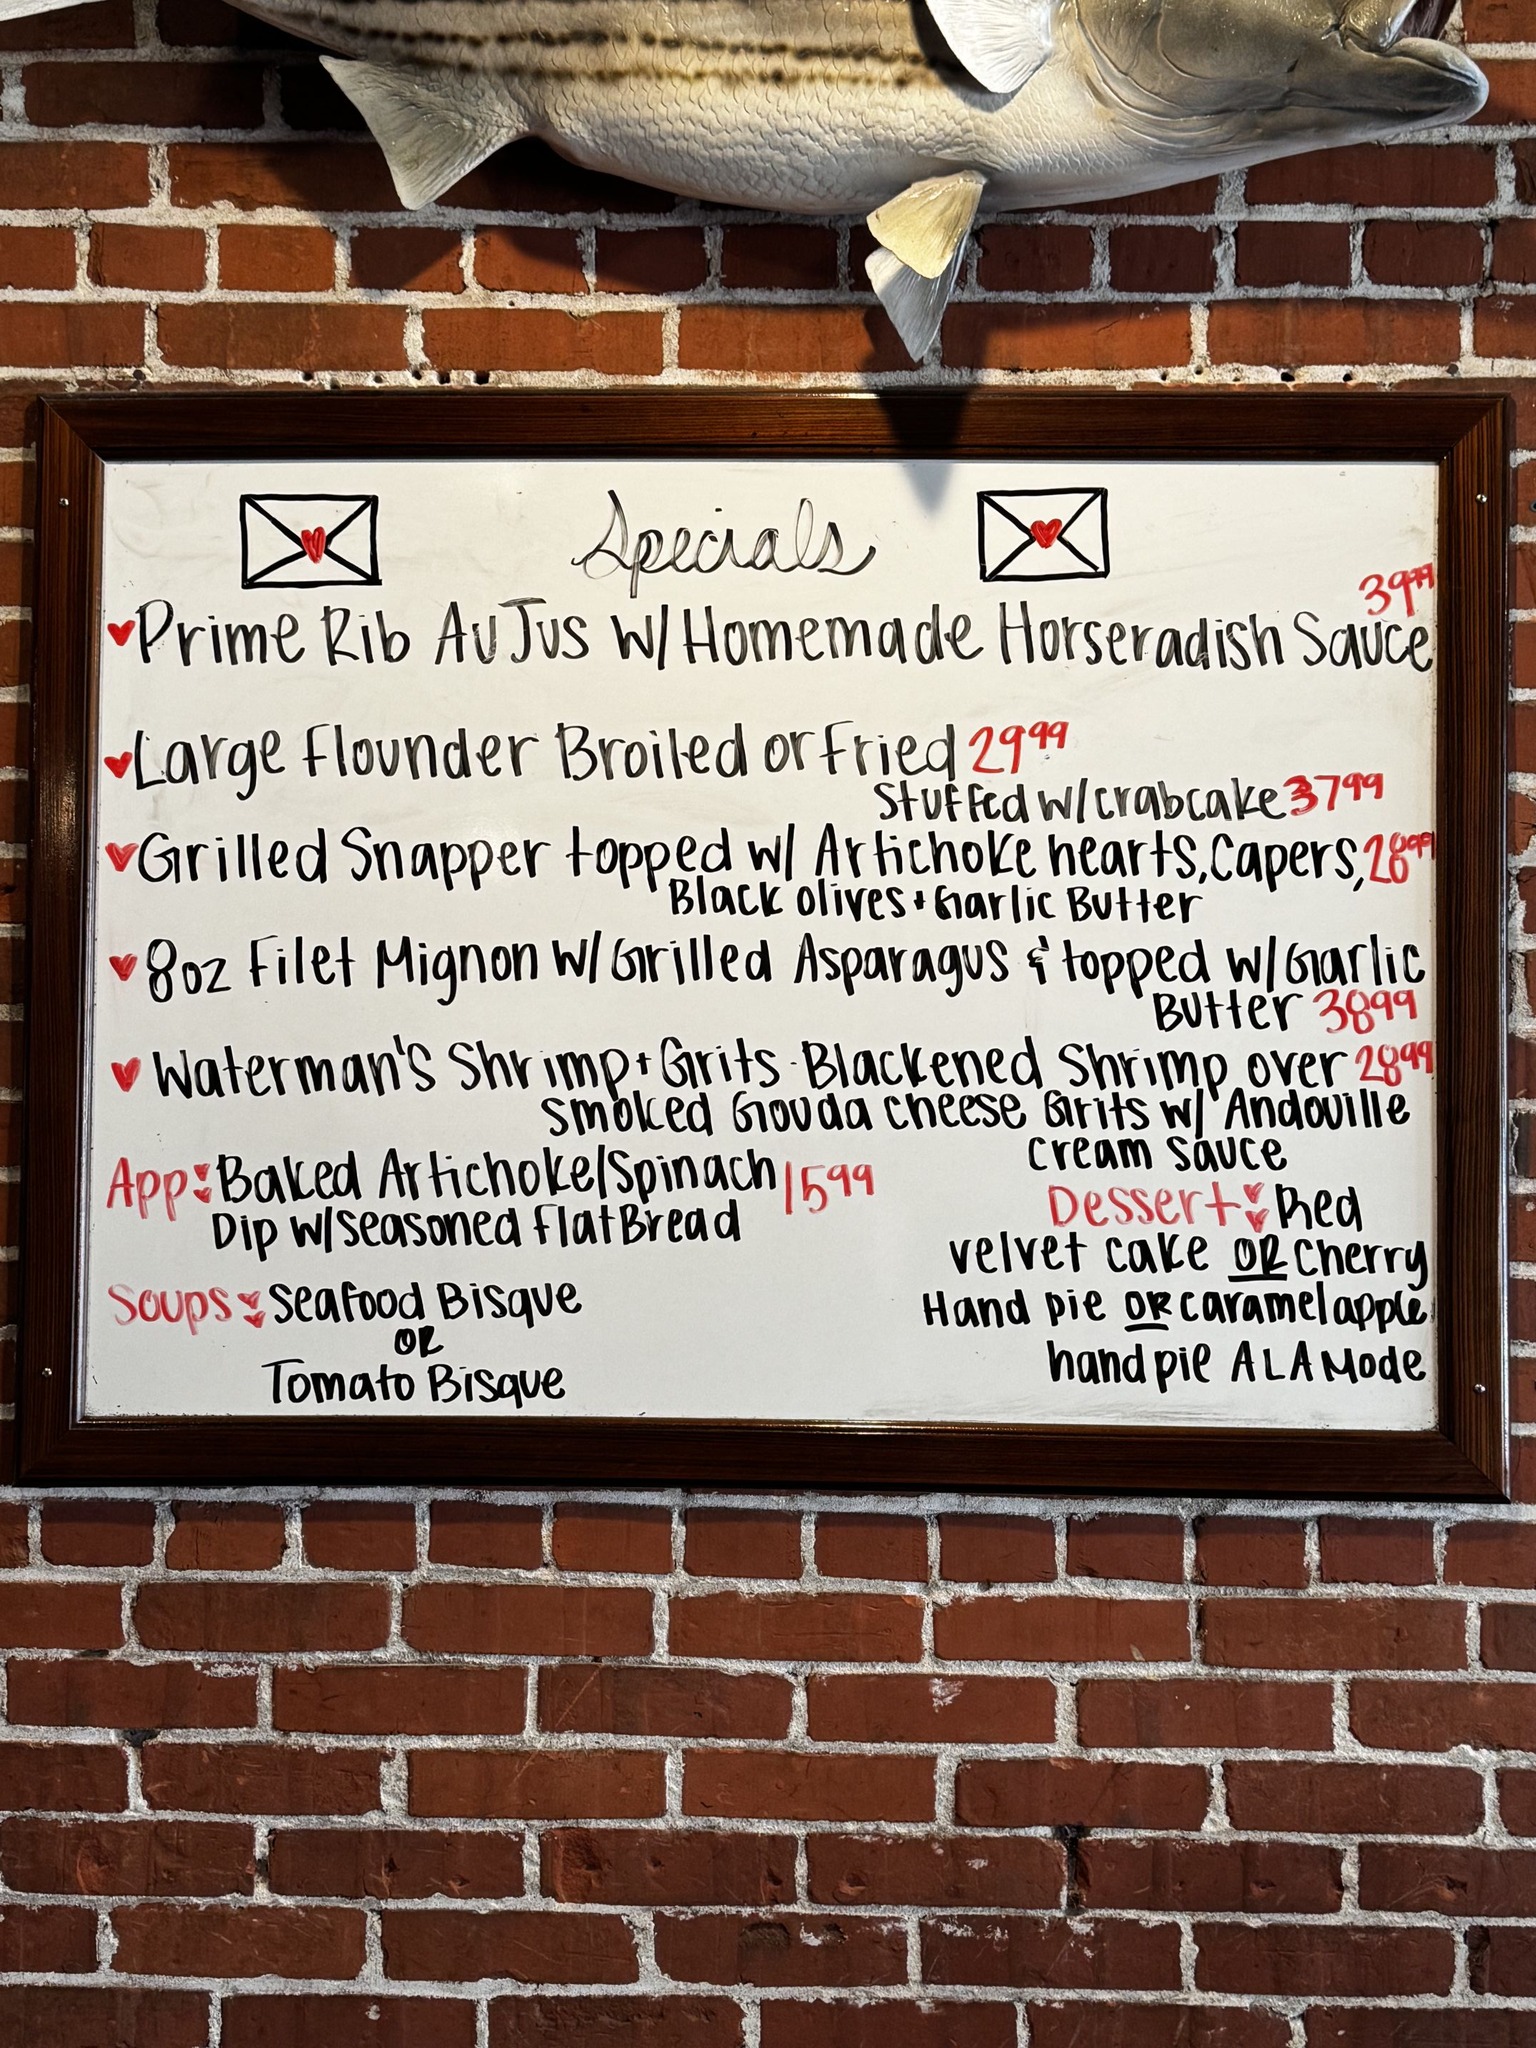 Specials
39⁹⁹
Prime Rib Au Jus w/ Homemade Horseradish Sauce
Large Flounder Broiled or Fried 29⁹⁹
Stuffed w/ crabcake 37⁹⁹
Grilled Snapper topped w/ Artichoke hearts, Capers, 28⁹⁹
Black olives + Garlic Butter
8oz Filet Mignon w/ Grilled Asparagus & topped w/ Garlic
Butter 38⁹⁹
Waterman's Shrimp + Grits - Blackened Shrimp over 28⁹⁹
smoked Gouda cheese Grits w/ Andouille
cream sauce
App: Baked Artichoke/Spinach 15⁹⁹
Dip w/ seasoned FlatBread
Soups: Seafood Bisque
OR
Tomato Bisque
Dessert: Red
velvet cake OR Cherry
Hand pie OR caramel apple
hand pie A LA Mode